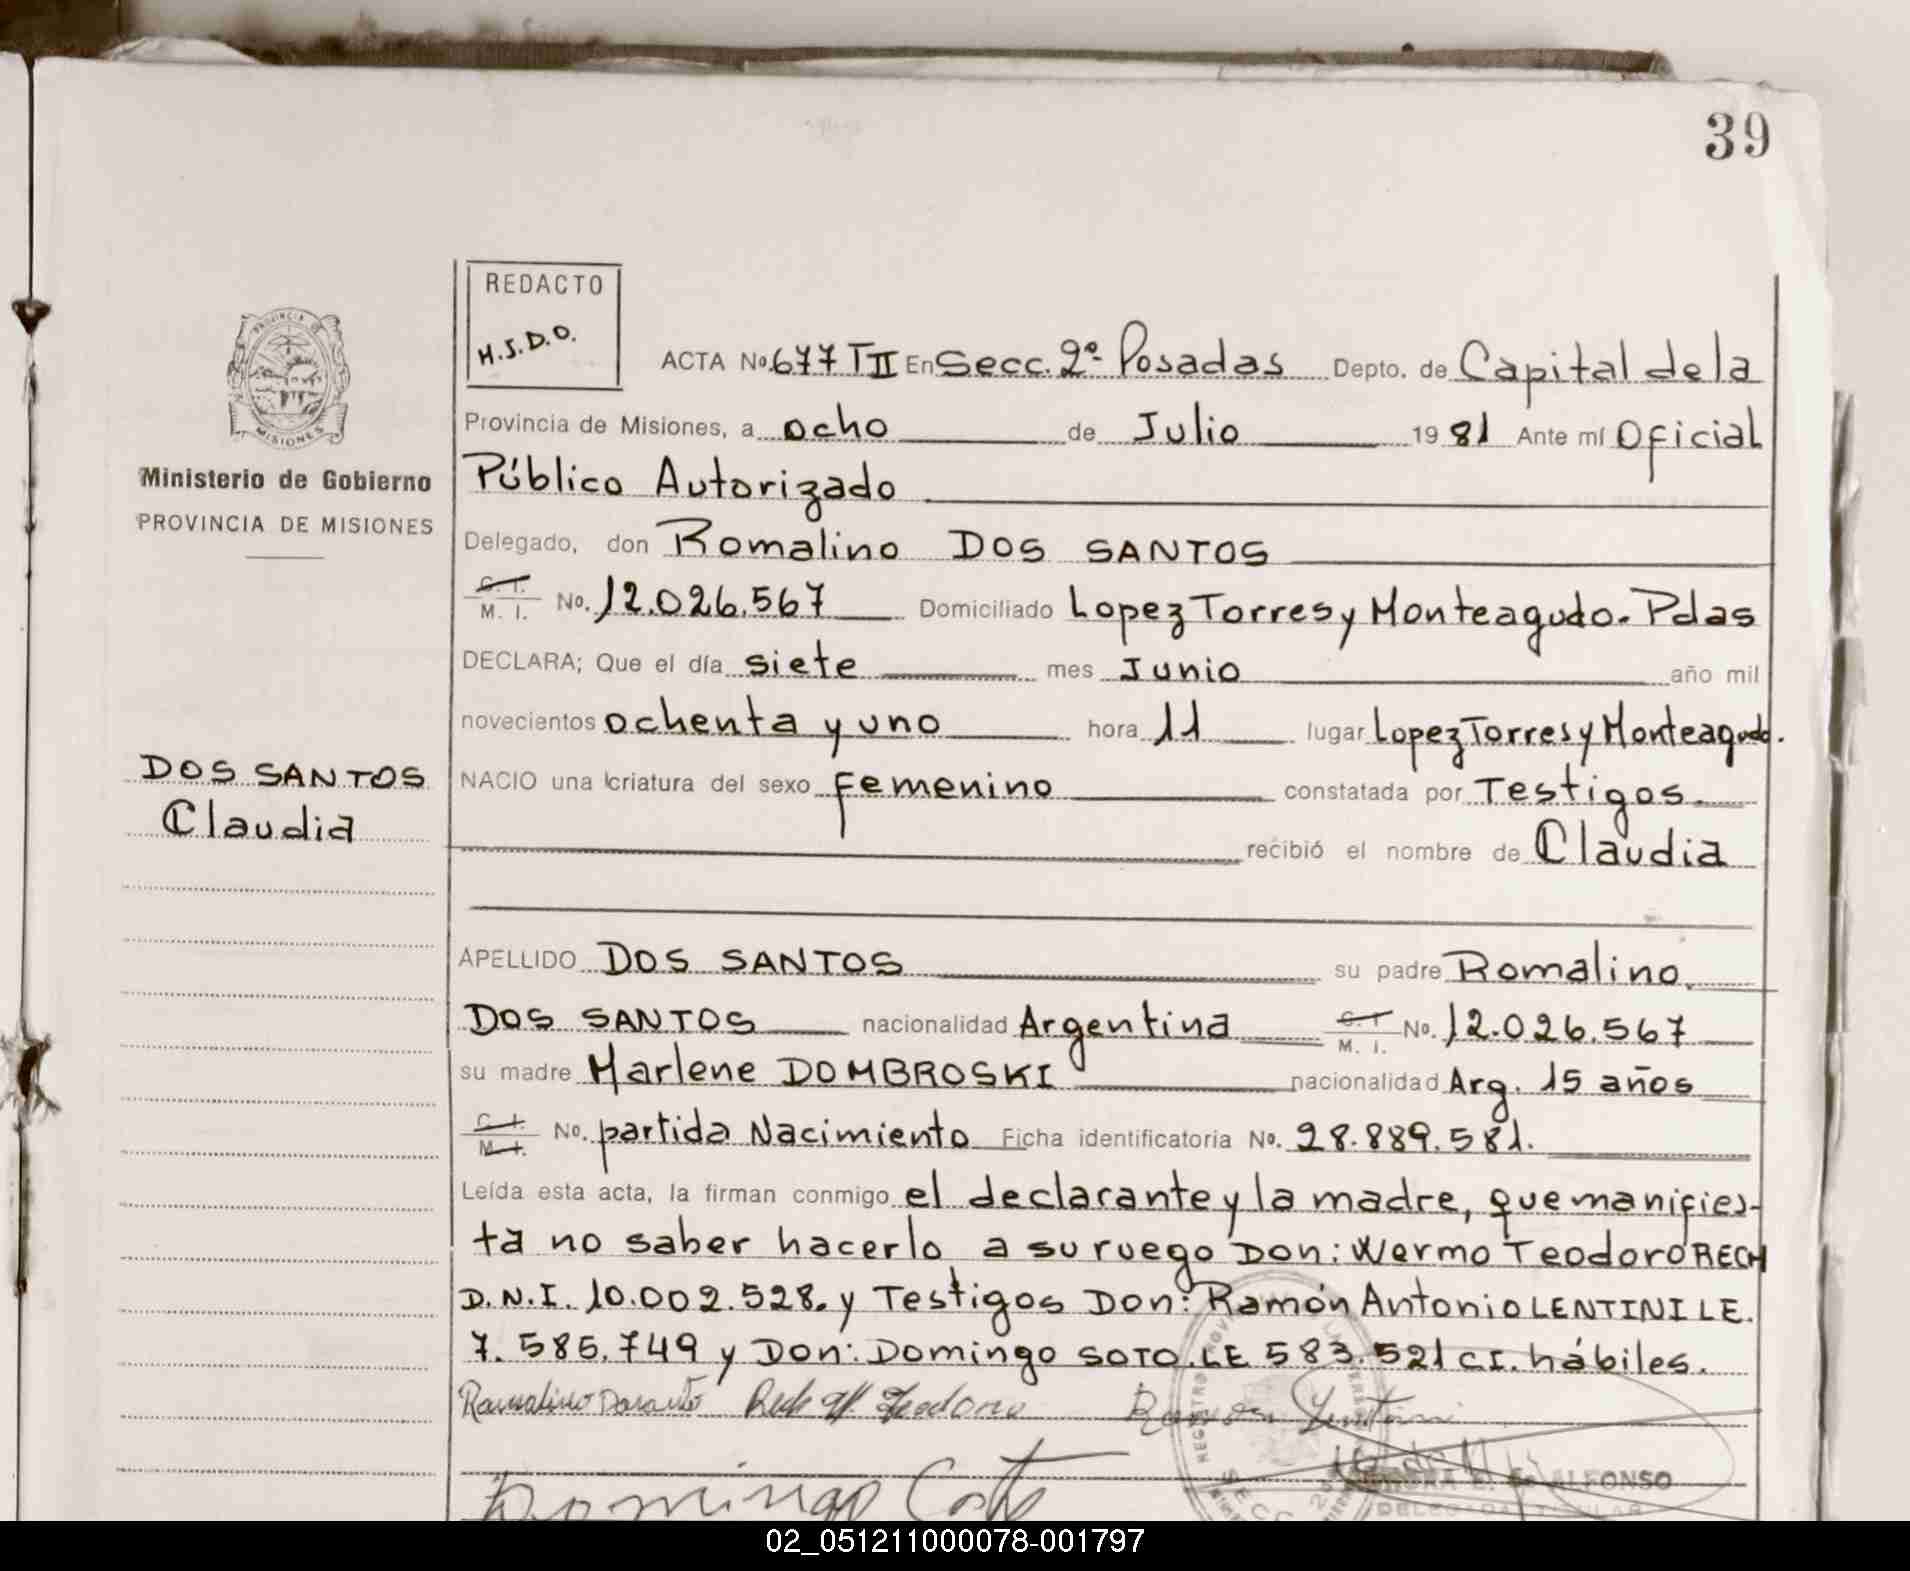 39
REDACTO
H.S.D.O.
ACTA No. 677 TII En Secc. 2º Posadas Depto. de Capital de la
Provincia de Misiones, a ocho de Julio 19 81 Ante mí Oficial
Público Autorizado
PROVINCIA DE
MISIONES
Ministerio de Gobierno
PROVINCIA DE MISIONES
Delegado, don Romalino DOS SANTOS
C. I.
M. I. No. 12.026.567 Domiciliado Lopez Torres y Monteagudo. Pdas
DECLARA; Que el día siete mes Junio año mil
novecientos ochenta y uno hora 11 lugar Lopez Torres y Monteagudo.
DOS SANTOS
Claudia
NACIO una criatura del sexo femenino constatada por Testigos.
recibió el nombre de Claudia
APELLIDO DOS SANTOS su padre Romalino
DOS SANTOS nacionalidad Argentina C. I.
M. I. No. 12.026.567
su madre Marlene DOMBROSKI nacionalidad Arg. 15 años
C. I.
M. I. No. partida Nacimiento Ficha identificatoria No. 28.889.581.
Leída esta acta, la firman conmigo el declarante y la madre, que manifies-
ta no saber hacerlo a su ruego Don: Wermo Teodoro RECH
D.N.I. 10.002.528. y Testigos Don: Ramón Antonio LENTINI LE.
7.585.749 y Don: Domingo SOTO. LE 583.521 C.I. hábiles.
Ramon Lentini
Domingo
ALFONSO
DELEGADA TITULAR
02_051211000078-001797